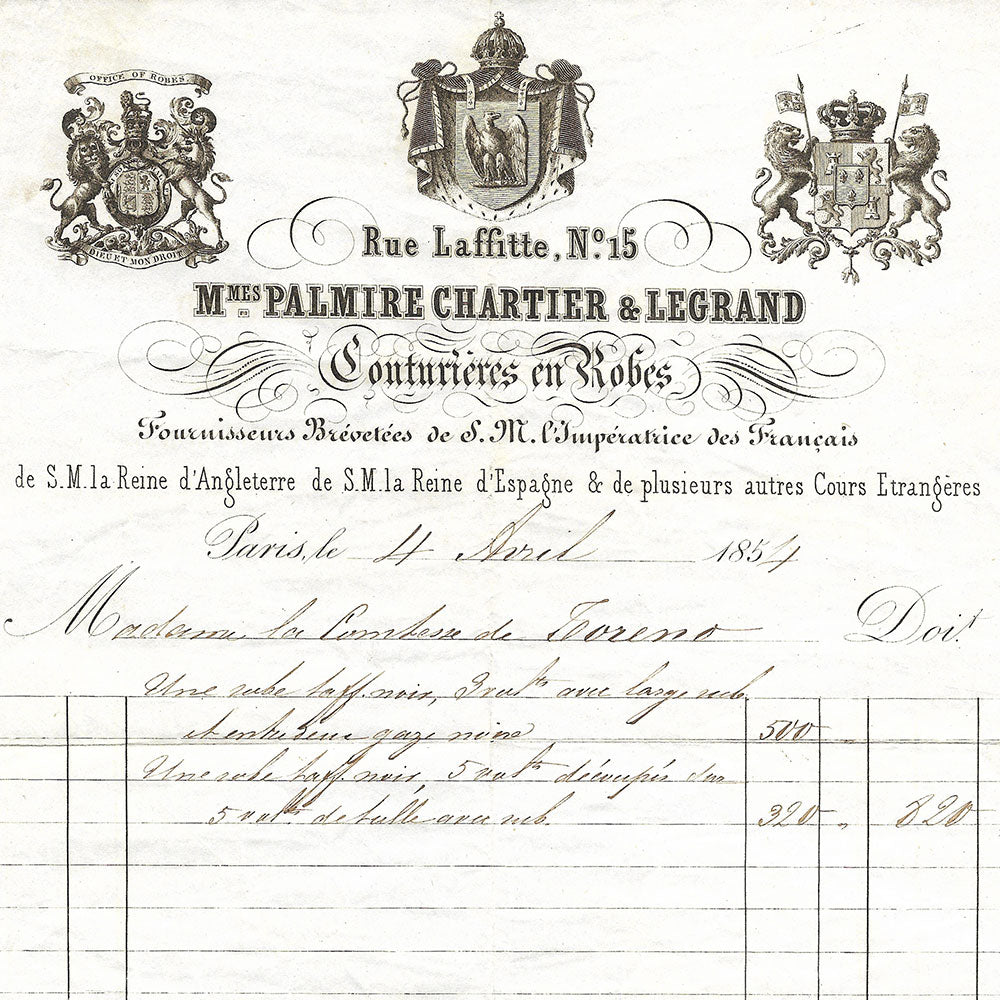 OFFICE OF ROBES
DIEU ET MON DROIT
Rue Laffitte, No. 15
MMES PALMIRE CHARTIER & LEGRAND
Couturières en Robes
Fournisseurs Brévetées de S. M. l'Impératrice des Français
de S. M. la Reine d'Angleterre de S. M. la Reine d'Espagne & de plusieurs autres Cours Etrangères
Paris, le 4 Avril 1854
Madame la Comtesse de Toreno Doit
Une robe taff. noir, 3 volts avec large rub.
et entredeux gaze noire 500 "
Une robe taff. noir, 5 volts découpés sur
5 volts de tulle avec rub. 320 " 820